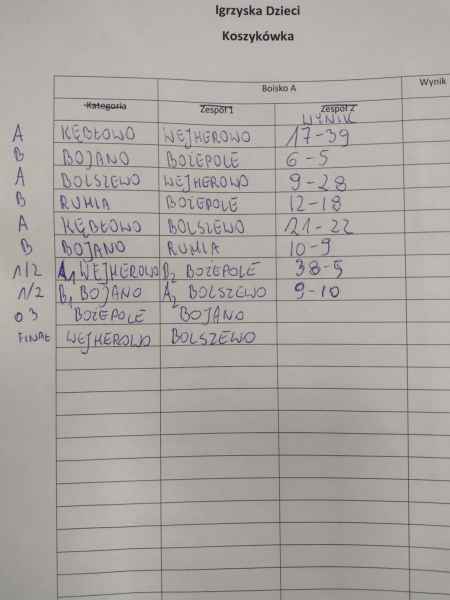 Igrzyska Dzieci
Koszykówka
Boisko A Wynik
Kategoria Zespół 1 Zespół 2
WYNIK
A KĘBŁOWO WEJHEROWO 17-39
B BOJANO BOŻEPOLE 6-5
A BOLSZEWO WEJHEROWO 9-28
B RUMIA BOŻEPOLE 12-18
A KĘBŁOWO BOLSZEWO 21-22
B BOJANO RUMIA 10-9
1/2 A1 WEJHEROWO B2 BOŻEPOLE 38-5
1/2 B1 BOJANO A2 BOLSZEWO 9-10
O 3 BOŻEPOLE BOJANO
FINAŁ WEJHEROWO BOLSZEWO